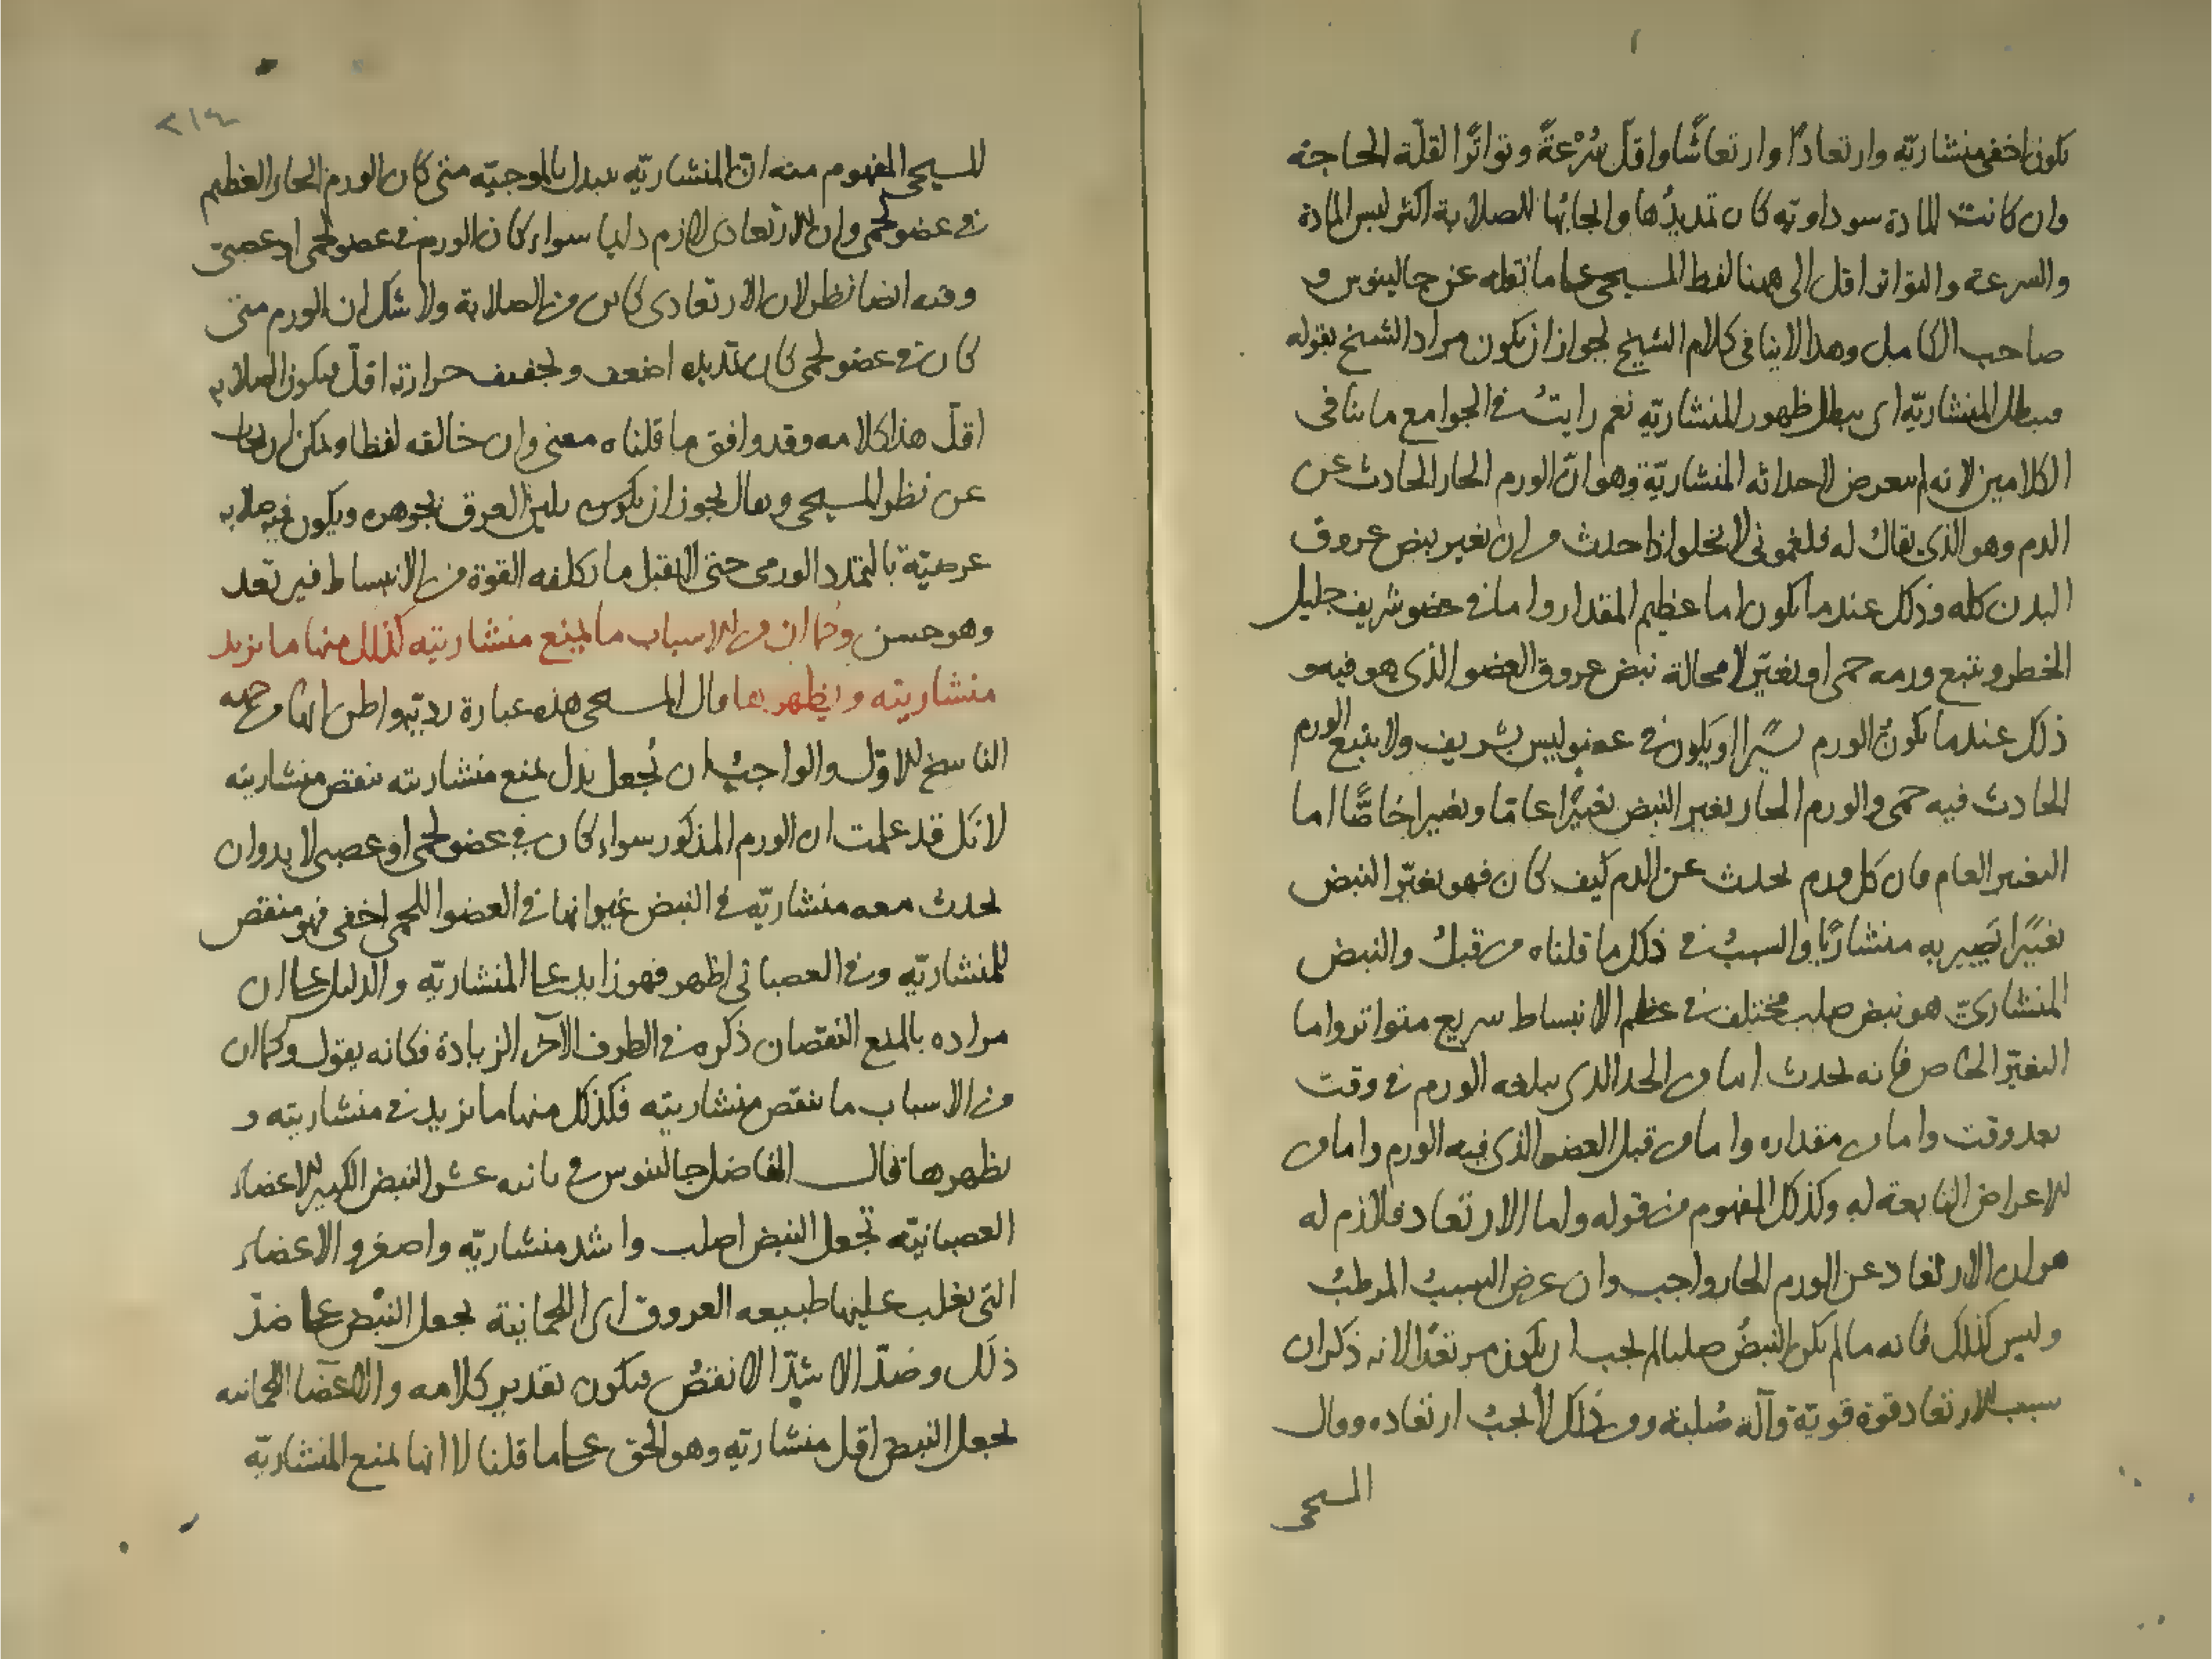 يكون اخفى منشارية وارتعادًا وارتعاشًا واقلّ سُرْعةً وتواترًا لقلّة الحاجة
وان كانت المادة سوداوية كان تمديدُها وايجابُها للصلابة اكثر ليبس المادة
والسرعة والتواتر اقل الى هنا لفظ المسيحي على ما نقله عن جالينوس و
صاحب الكامل وهذا لا ينافى كلام الشيخ لجواز ان يكون مراد الشيخ بقوله
يبطل المنشاريّة اى يبطل ظهور المنشاريّة نعم رايتُ فى الجوامع ما ينافى
الكلامين لانه لم يتعرض لاحداثه المنشاريّة وهو انّ الورم الحار الحادث عن
الدم وهو الذى يقال له فلغمونى لا يخلو اذا حدث من ان يغير نبض عروق
البدن كله وذلك عندما يكون اما عظيم المقدار واما فى عضو شريف جليل
الخطر ويتبع ورمه حمى او يغيّر لا محالة نبض عروق العضو الذى هو فيه و
ذلك عندما يكونُ الورم يسيرًا او يكون فى عضو ليس بشريف ولا يتبع الورم
الحادث فيه حمى والورم الحار يغير النبض تغييرًا عامًا وتغييرا خاصًّا اما
التغيير العام فان كل ورم يحدث عن الدم كيف كان فهو يغيّر النبض
تغييرًا يَصِير به منشاريًا والسببُ فى ذلك ما قلناه من قبلُ والنبض
المنشارىّ هو نبض صلب مختلف فى عظم الانبساط سريع متواتر واما
التغيّر الخاص فانه يحدث اما من الحد الذى يبلغه الورم فى وقت
بعد وقت واما من مقداره واما من قبل العضو الذى فيه الورم واما من
الاعراض التابعة له وكذلك المفهوم من قوله واما الارتعاد فلازم له
هو ان الارتعاد عن الورم الحار واجب وان عرض السببُ المرطبُ
وليس كذلك فانه ما لم يكن النبضُ صلبا لم يجب ان يكون مرتعدًا لانه ذكر ان
سبب الارتعاد قوة قوية وآلة صُلبة ودون ذلك لا يجبُ ارتعاده وقال
المسيحي
٢١٤
للمسيحي المفهوم منه انّ المنشاريّه يبدل بالموجيّه متى كان الورم الحار العظيم
فى عضو لحمى وان الارتعادى لازم دايما سواء كان الورم فى عضو لحمى او عصبى
وفيه ايضا نظر لان الارتعادى كاين من الصلابة ولا شك ان الورم متى
كان فى عضو لحمى كان تمديده اضعف وتجفيف حرارته اقلّ فيكون الصلابه
اقلّ هذا كلامه وقد وافق ما قلناه معنى وان خالفه لفظا ويمكن ان يجاب
عن نظر المسيحي ويقال يجوز ان يكون يلين العرق بجوهره ويكون فيه صلابه
عرضيّة بالتمدد الورمى حتى لا يقبل ما يكلفه القوة من الانبساط فيرتعد
وهو حسن وكما ان من الاسباب ما يمنع منشاريته كذلك منها ما يزيد
منشاريته ويظهرها قال المسيحي هذه عبارة رديّة واظن انها من جهه
الناسخ للاوّل والواجبُ ان يُجعل بدل يمنع منشاريته ينقص منشاريته
لانك قد علمت ان الورم المذكور سواء كان فى عضو لحمى او عصبى لا بد وان
يحدث معه منشاريّه فى النبض غير انها فى العضو اللحمى اخفى فهو منقص
للمنشاريّه وفى العصبانى اظهر فهو زايد على المنشاريّه والدليل على ان
مراده بالمنع النقصان ذكره فى الطرف الآخر الزيادة فكانه يقول وكما ان
من الاسباب ما ينقص منشاريته فكذلك منها ما يزيد فى منشاريته و
يظهرها قال الفاضل جالينوس فى ثانيه عشر النبض الكبير الاعضاء
العصبانيّه تجعل النبض اصلب واشد منشاريّه واصغر والاعضاء
التى يغلب عليها طبيعه العروق اى اللحمانية يجعل النبض على ضدّ
ذلك وضدّ الاشدّ الانقصُ فيكون تقدير كلامه والاعضا اللحمانيه
يجعل النبض اقل منشاريّه وهو الحق على ما قلنا لا انها يمنع المنشاريّه